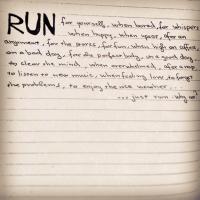 RUN for yourself, when bored, for whispers
when happy, when upset, after an
argument, for the stress, for fun, when high on office,
on a bad day, for the perfect body, on a good day,
to clear the mind, when overwhelmed, after a nap
to listen to new music, when feeling low, to forget
the problems, to enjoy the nice weather...
...just run - why not?